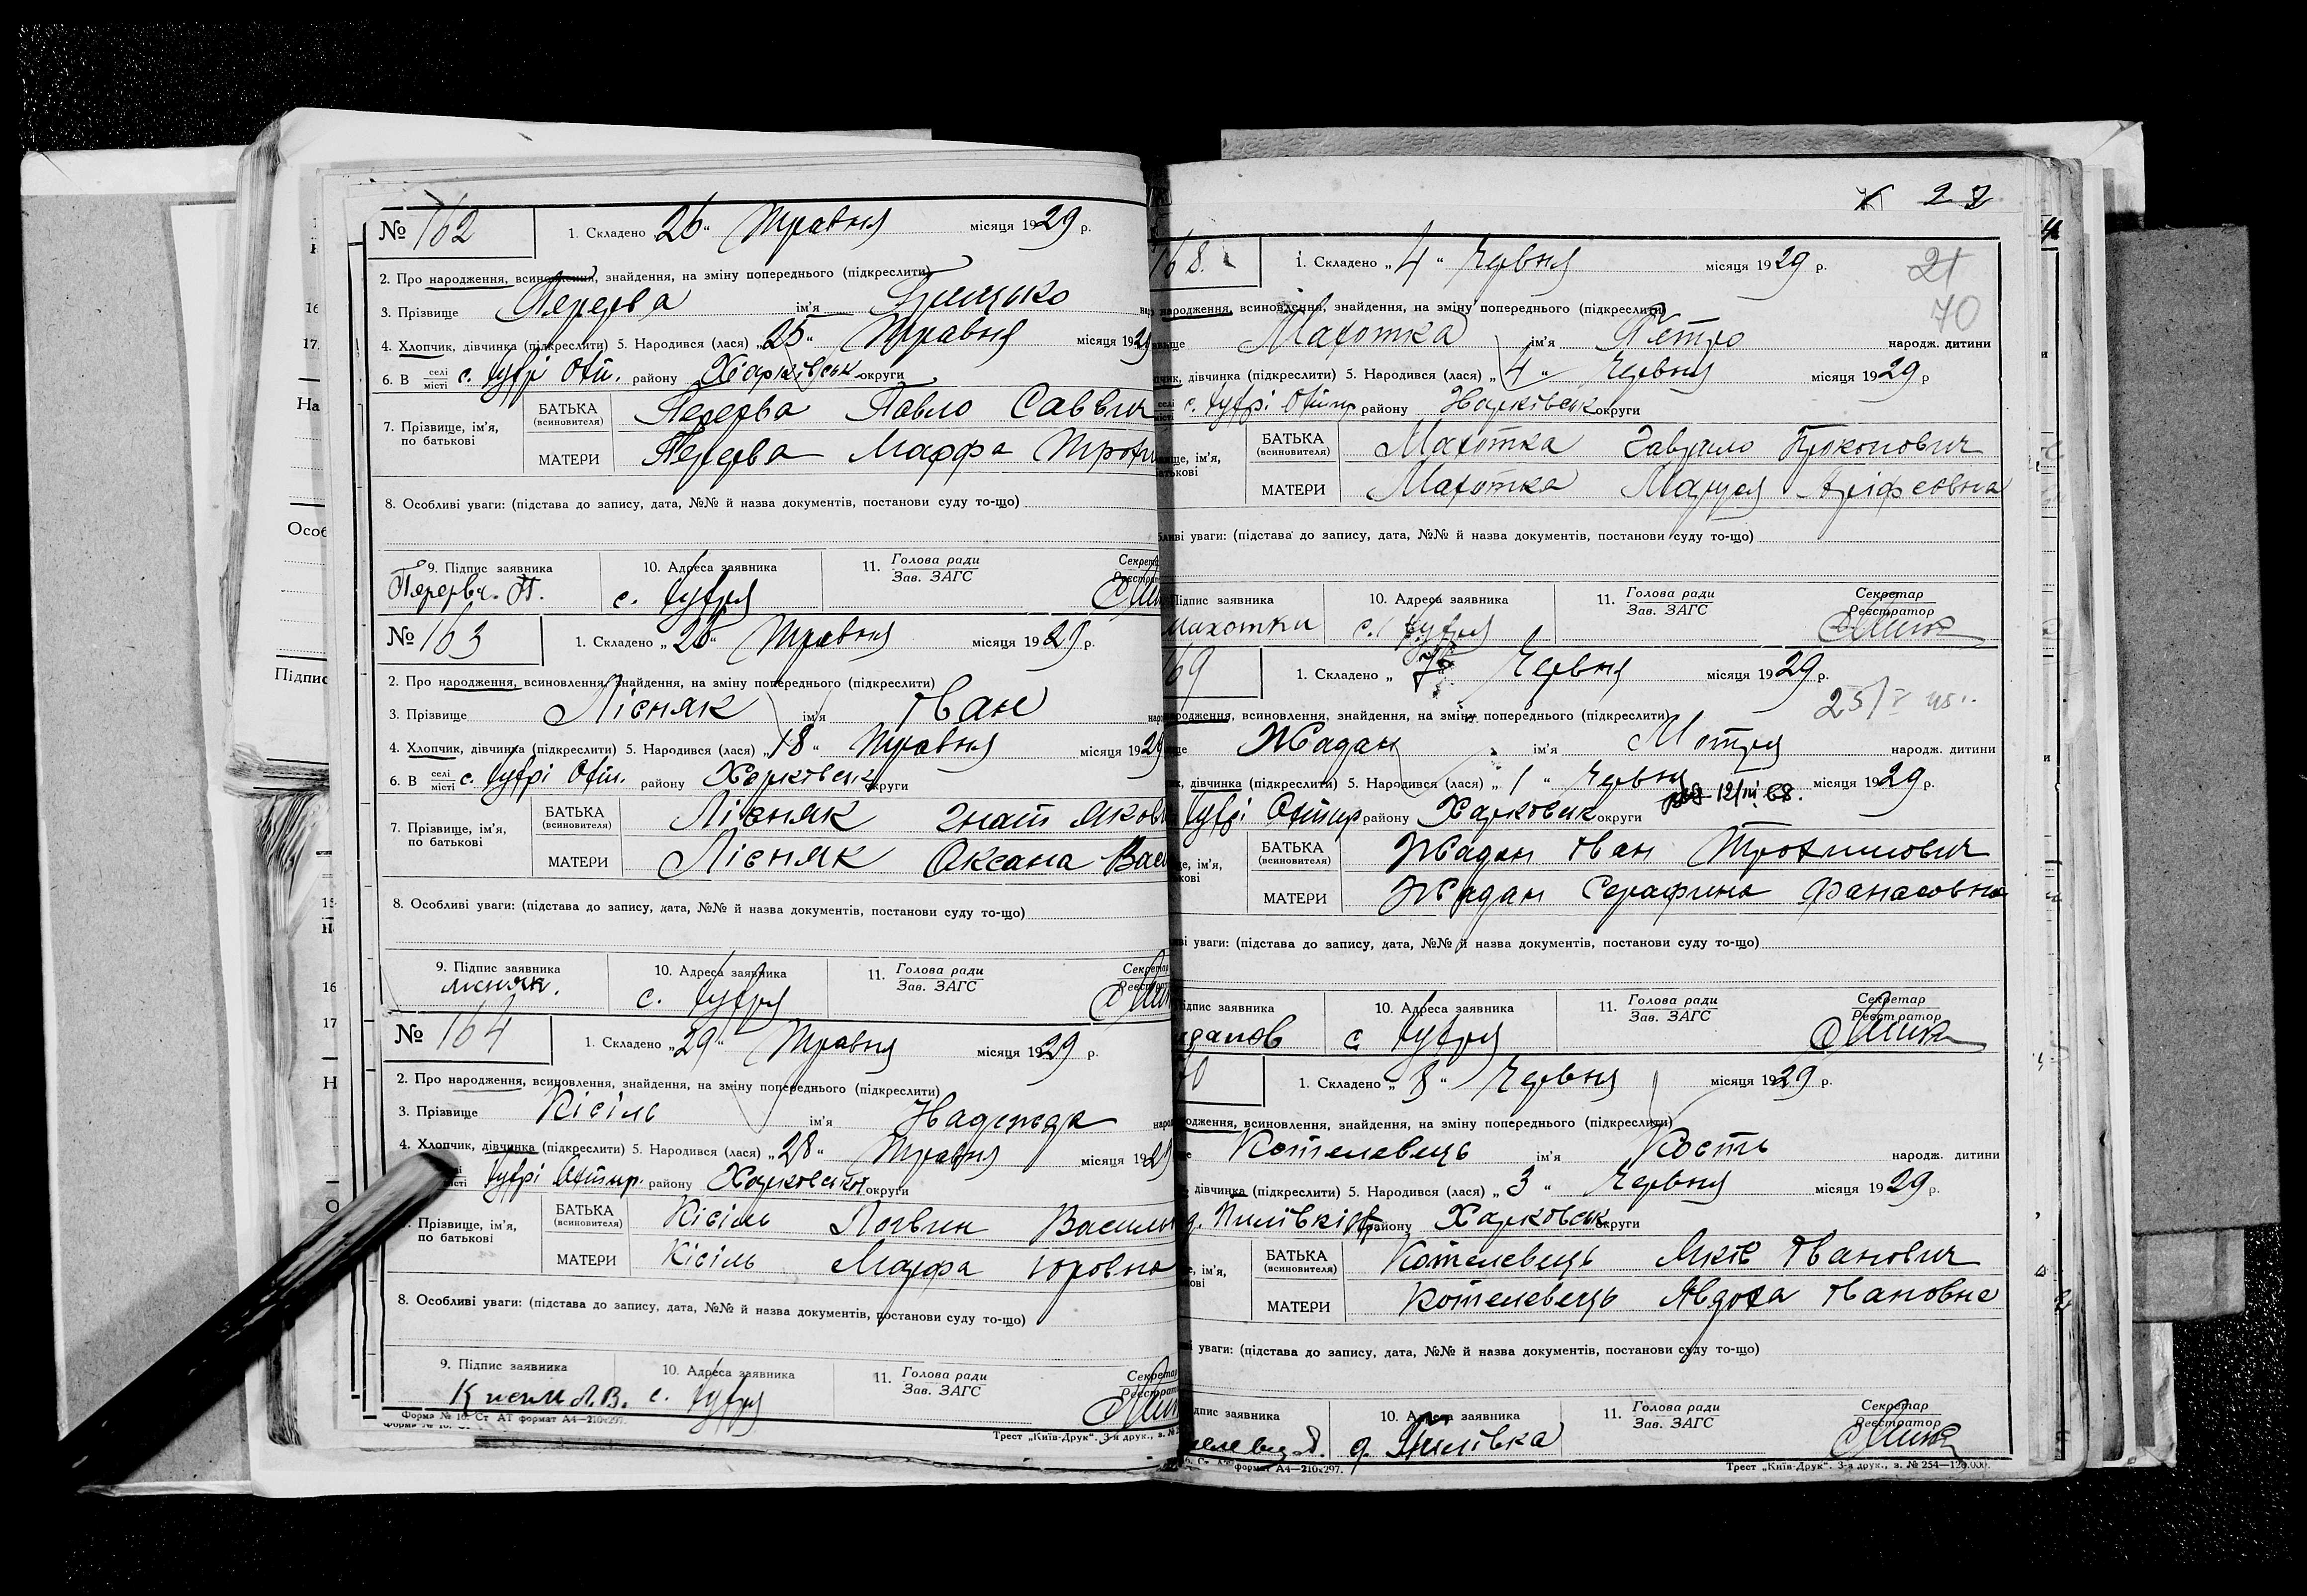 № 162 1. Складено 26 " Травня місяця 1929 р.
2. Про народження, всиновлення, знайдення, на зміну попереднього (підкреслити)
3. Прізвище Перерва ім'я Грицько
4. Хлопчик, дівчинка (підкреслити) 5. Народився (лася) „ 25 " Травня місяця 1929
6. В селі місті с. Хухрі Охтир. району Харківськ округи
7. Прізвище, ім'я, по батькові
БАТЬКА (всиновителя) Перерва Павло Саввич
МАТЕРИ Перерва Марфа Трохи
8. Особливі уваги: (підстава до запису, дата, №№ й назва документів, постанови суду то-що)
9. Підпис заявника 10. Адреса заявника 11. Голова ради Зав. ЗАГС
Перерва П. с. Хухря
№ 163 1. Складено „ 26 " Травня місяця 1929 р.
2. Про народження, всиновлення, знайдення, на зміну попереднього (підкреслити)
3. Прізвище Лісняк ім'я Іван
4. Хлопчик, дівчинка (підкреслити) 5. Народився (лася) „ 18 " Травня місяця 1929
6. В селі місті с. Хухрі Охти. району Харківськ округи
7. Прізвище, ім'я, по батькові
БАТЬКА (всиновителя) Лісняк Гнат Яков
МАТЕРИ Лісняк Оксана Васи
8. Особливі уваги: (підстава до запису, дата, №№ й назва документів, постанови суду то-що)
9. Підпис заявника 10. Адреса заявника 11. Голова ради Зав. ЗАГС
Лісняк. с. Хухря
№ 164 1. Складено „ 29 " Травня місяця 1929 р.
2. Про народження, всиновлення, знайдення, на зміну попереднього (підкреслити)
3. Прізвище Кісіль ім'я Надежда
4. Хлопчик, дівчинка (підкреслити) 5. Народився (лася) „ 28 " Травня місяця 1929
Хухрі Охтир. району Харковськой округи
Прізвище, ім'я, по батькові
БАТЬКА (всиновителя) Кісіль Логвин Васильо
МАТЕРИ Кісіль Марфа Юровна
8. Особливі уваги: (підстава до запису, дата, №№ й назва документів, постанови суду то-що)
9. Підпис заявника 10. Адреса заявника 11. Голова ради Зав. ЗАГС
Кисиль Л.В. с. Хухря
Форма № 16. Ст АТ формат А4—210х297.
Трест „Київ-Друк". 3-я друк., з. №
27
21
70
168. 1. Складено „ 4 " Червня місяця 1929 р.
народження, всиновлення, знайдення, на зміну попереднього (підкреслити)
Махотка ім'я Петро народж. дитини
дівчинка (підкреслити) 5. Народився (лася) „ 4 " Червня місяця 1929 р
с. Хухрі Охтир району Харківськ округи
БАТЬКА (всиновителя) Махотка Гаврило Прокопович
МАТЕРИ Махотка Маруся
уваги: (підстава до запису, дата, №№ й назва документів, постанови суду то-що)
Підпис заявника 10. Адреса заявника 11. Голова ради Зав. ЗАГС Секретар Реєстратор
Махотки с. Хухря
69 1. Складено „ 7 " Червня місяця 1929 р.
народження, всиновлення, знайдення, на зміну попереднього (підкреслити)
Жадан ім'я Мотря народж. дитини
дівчинка (підкреслити) 5. Народився (лася) „ 1 " Червня місяця 1929 р.
12/III 68.
Хухрі Охтир району Харковськ округи
БАТЬКА (всиновителя) Жадан Іван Трохимович
МАТЕРИ Жадан Серафина Фанасовна
уваги: (підстава до запису, дата, №№ й назва документів, постанови суду то-що)
Підпис заявника 10. Адреса заявника 11. Голова ради Зав. ЗАГС Секретар Реєстратор
с Хухря
70 1. Складено „ 8 " Червня місяця 1929 р.
народження, всиновлення, знайдення, на зміну попереднього (підкреслити)
Котелевець ім'я Кость народж. дитини
дівчинка (підкреслити) 5. Народився (лася) „ 3 " Червня місяця 1929 р.
району Харковськ. округи
БАТЬКА (всиновителя) Котелевець Яків Іванович
МАТЕРИ Котелевець Явдоха Івановна
уваги: (підстава до запису, дата, №№ й назва документів, постанови суду то-що)
Підпис заявника 10. Адреса заявника 11. Голова ради Зав. ЗАГС Секретар Реєстратор
формат А4—210х297.
Трест „Київ-Друк". 3-я друк., з. № 254—120.000.